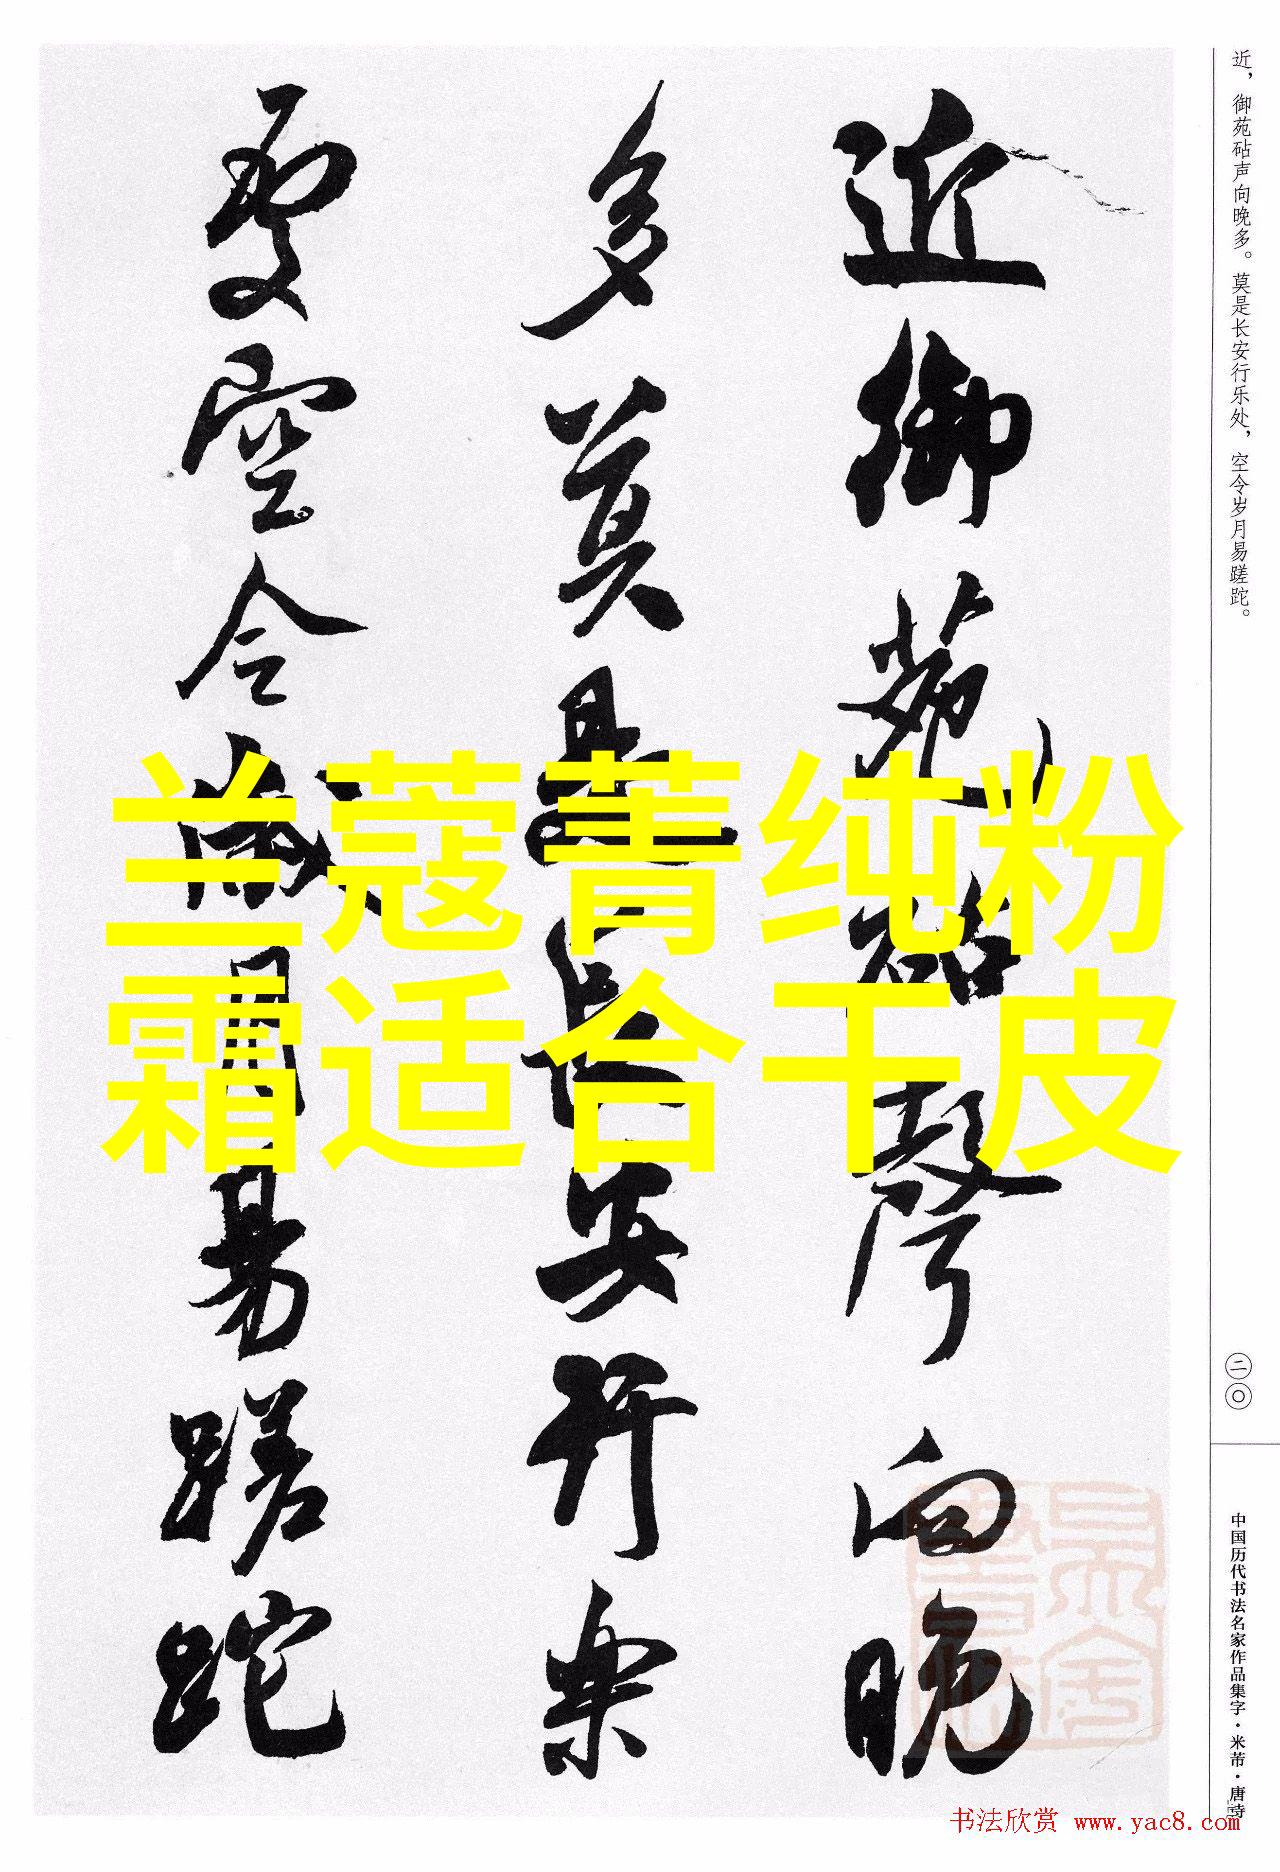 近，御苑砧声向晚多。莫是长安行乐处，空令岁月易蹉跎。
近御苑砧聲向晚
多莫是长安行樂
處空令歲月易蹉跎
兰蔻菁纯粉
霜适合干皮
二〇
中国历代书法名家作品集字·米芾·唐诗
书法欣赏 www.yac8.com